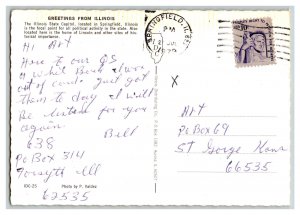 GREETINGS FROM ILLINOIS
The Illinois State Capitol, located in Springfield, Illinois
is the focal point for all political activity in the state. Also
located here is the home of Lincoln and other sites of historical importance.
Hi Art
Here to our QS
Book I was
out of cards just got
them to day I will
Be listen for you
again.
Bill
638
Po Box 3141
Forsyth Ill
62535
IDC-25 Photo by P. Valdez
SPRINGFIELD IL
PM
X
Art
PO Box 69
St George Kans
66535